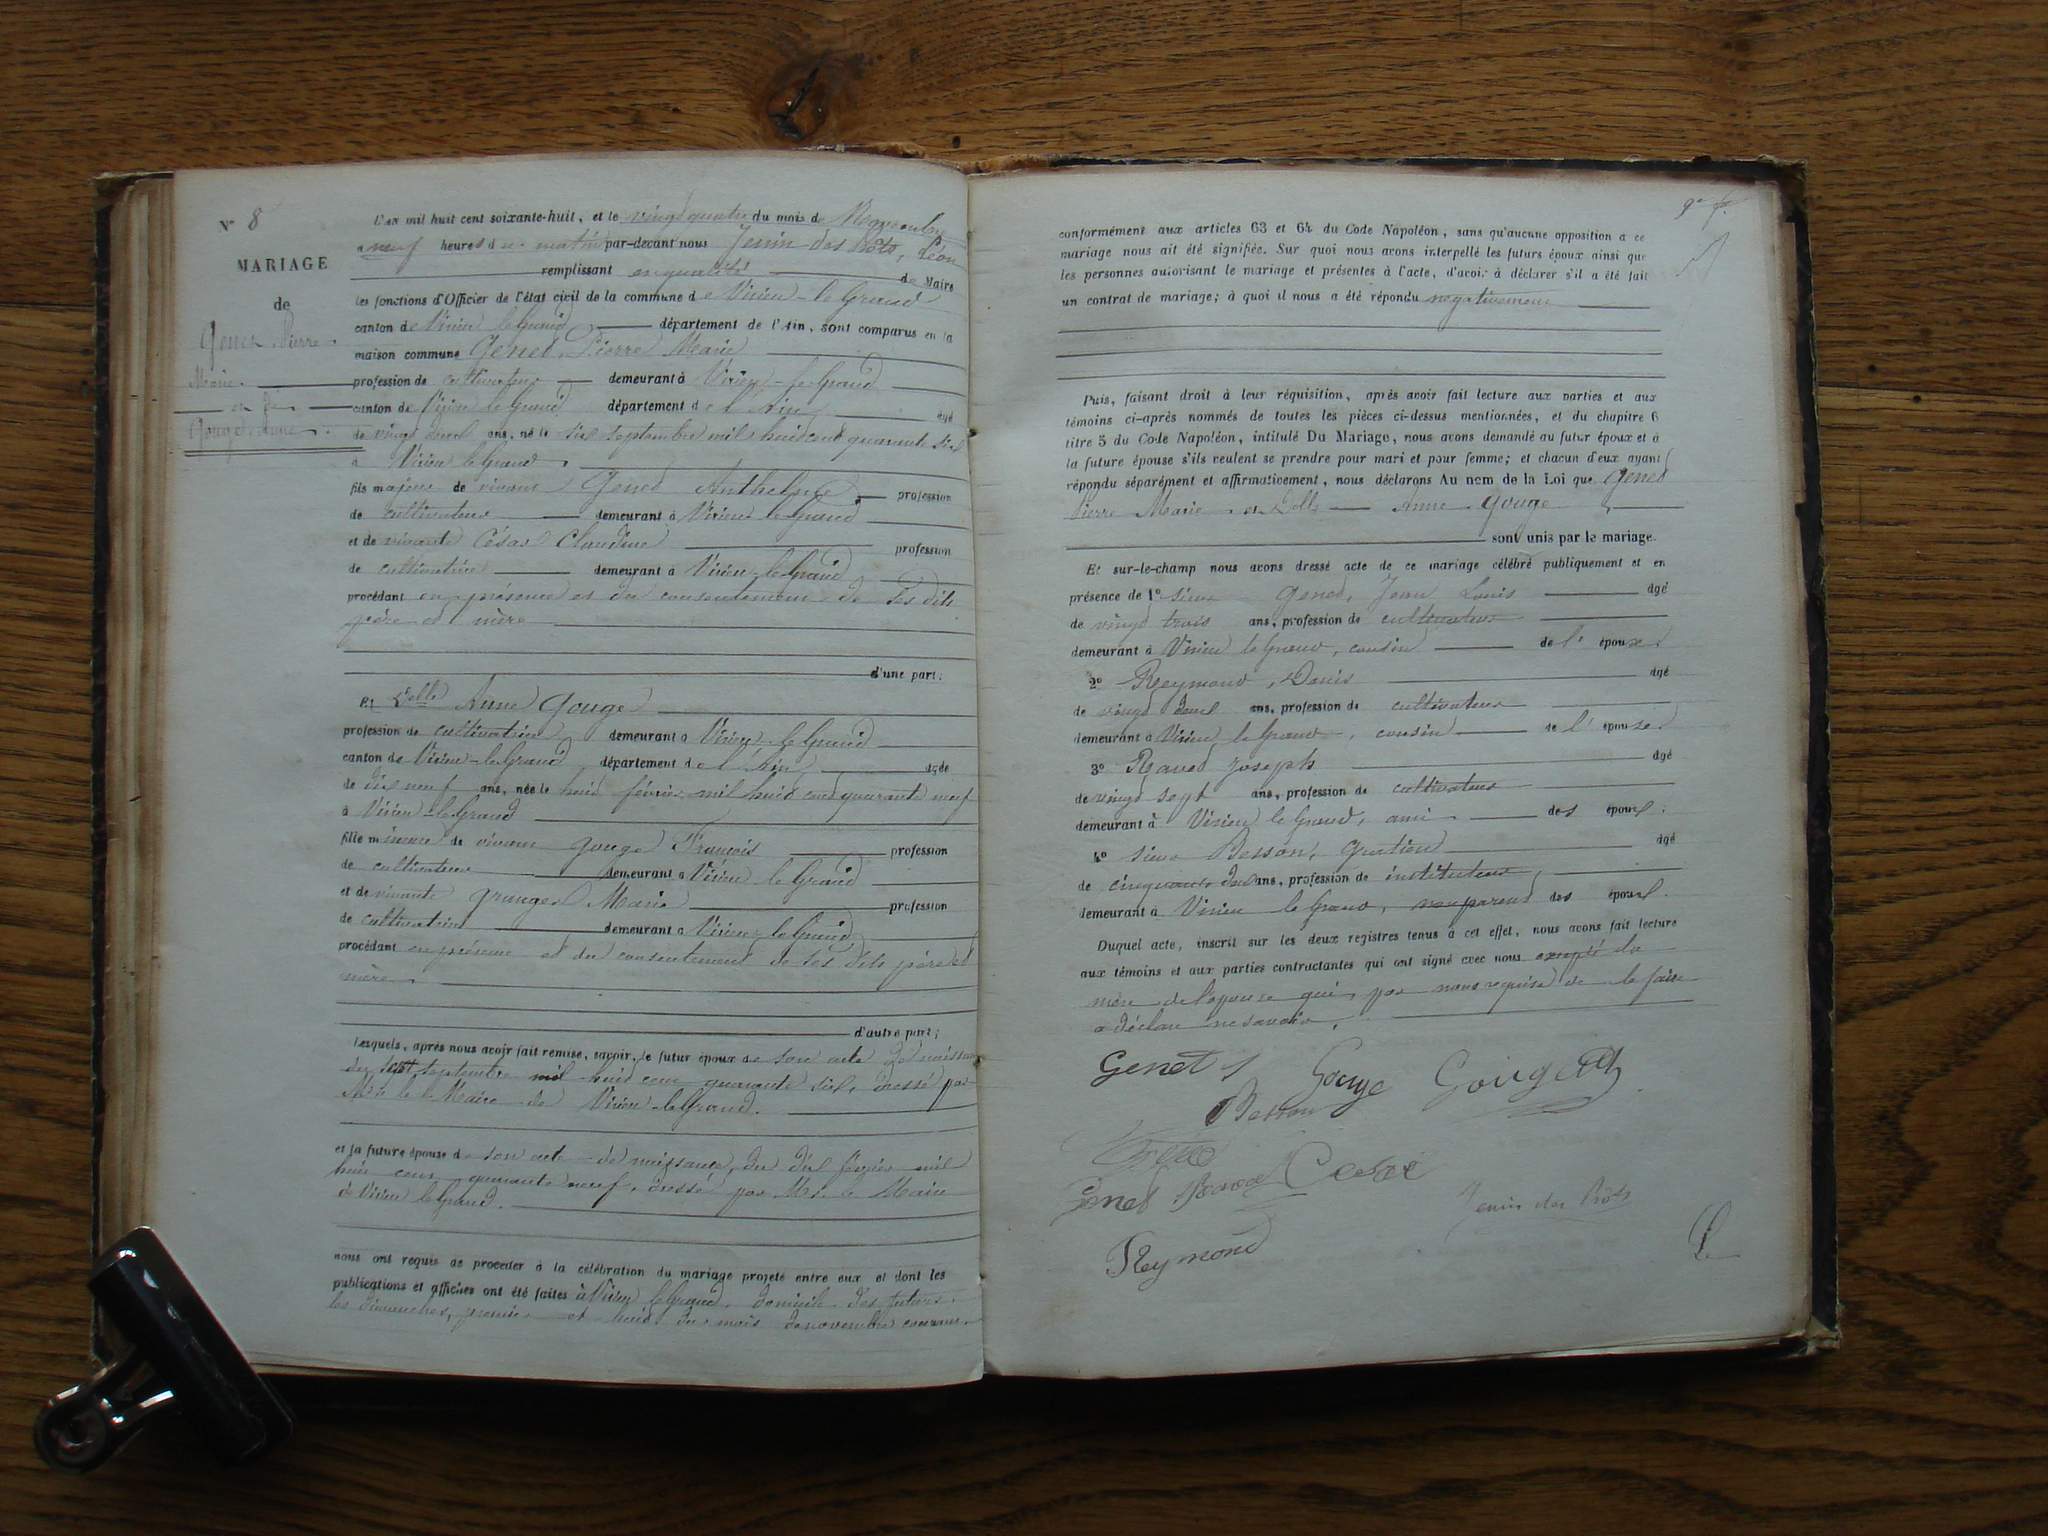 N° 8
MARIAGE
de
Genet Pierre
Marie
et de
Gouge Anne
L'an mil huit cent soixante-huit, et le vingt quatre du mois de Novembre
a neuf heures du matin par-devant nous Jenin des Prôts, Léon
remplissant en qualité de Maire
les fonctions d'Officier de l'état civil de la commune de Virieu-le-Grand
canton de Virieu le Grand département de l'Ain, sont comparus en la
maison commune Genet, Pierre Marie
profession de cultivateur demeurant à Virieu-le-Grand
canton de Virieu le Grand département de l'Ain âgé
de vingt deux ans, né le six septembre mil huit cent quarante six
à Virieu le Grand
fils majeur de vivant Genet Anthelme profession
de cultivateur demeurant à Virieu le Grand
et de vivante César Claudine profession
de cultivatrice demeurant à Virieu-le-Grand
procédant en présence et du consentement de ses dits
père et mère
d'une part;
Et Delle Anne Gouge
profession de cultivatrice demeurant à Virieu-le-Grand
canton de Virieu-le-Grand département de l'Ain âgée
de dix neuf ans, née le huit février mil huit cent quarante neuf
à Virieu-le-Grand
fille mineure de vivant Gouge François profession
de cultivateur demeurant à Virieu le Grand
et de vivante Granger Marie profession
de cultivatrice demeurant à Virieu-le-Grand
procédant en présence et du consentement de ses dits père et
mère
d'autre part;
Lesquels, après nous avoir fait remise, savoir, le futur époux de son acte de naissance
du sept septembre mil huit cent quarante six, dressé par
Mr le Maire de Virieu-le-Grand.
et la future épouse de son acte de naissance, du dix février mil
huit cent quarante neuf, dressé par Mr le Maire
de Virieu le Grand.
nous ont requis de procéder à la célébration du mariage projeté entre eux et dont les
publications et affiches ont été faites à Virieu le Grand, domicile des futurs,
les dimanches, premier et huit du mois de novembre courant
conformément aux articles 63 et 64 du Code Napoléon, sans qu'aucune opposition a ce
mariage nous ait été signifiée. Sur quoi nous avons interpellé les futurs époux ainsi que
les personnes autorisant le mariage et présentes à l'acte, d'avoir à déclarer s'il a été fait
un contrat de mariage; à quoi il nous a été répondu négativement
Puis, faisant droit à leur réquisition, après avoir fait lecture aux parties et aux
témoins ci-après nommés de toutes les pièces ci-dessus mentionnées, et du chapitre 6
titre 5 du Code Napoléon, intitulé Du Mariage, nous avons demandé au futur époux et à
la future épouse s'ils veulent se prendre pour mari et pour femme; et chacun d'eux ayant
répondu séparément et affirmativement, nous déclarons Au nom de la Loi que Genet
Pierre Marie et Delle Anne Gouge
sont unis par le mariage.
Et sur-le-champ nous avons dressé acte de ce mariage célébré publiquement et en
présence de 1° sieur Genet, Jean Louis âgé
de vingt trois ans, profession de cultivateur
demeurant à Virieu le Grand, cousin de l'époux
2° Reymond, Denis âgé
de vingt deux ans, profession de cultivateur
demeurant à Virieu le Grand, cousin de l'épouse
3° Ravet Joseph âgé
de vingt sept ans, profession de cultivateur
demeurant à Virieu le Grand, ami des époux.
4° sieur Besson, Gratien âgé
de cinquante deux ans, profession de instituteur,
demeurant à Virieu le Grand, non parent des époux.
Duquel acte, inscrit sur les deux registres tenus à cet effet, nous avons fait lecture
aux témoins et aux parties contractantes qui ont signé avec nous excepté la
mère de l'épouse qui, par nous requise de le faire
a déclaré ne savoir.
Genet
Gouge
Gouge
Besson
Genet
Ravet
Cesar
Jenin des Prôts
Reymond